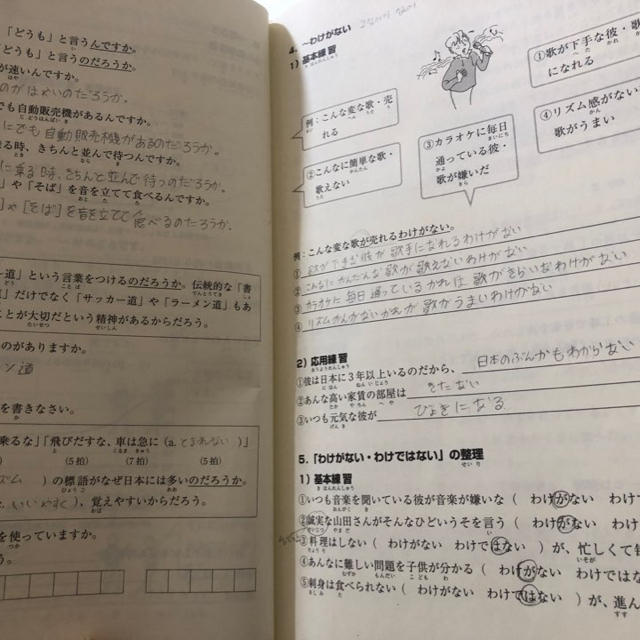 「どうも」と言うんですか。
どうも」と言うのだろうか。
が速いんですか。
のがはやいのだろうか。
でも自動販売機があるんですか。
にでも自動販売機があるのだろうか。
る時、きちんと並んで待つんですか。
に乗る時、きちんと並んで待つのだろうか。
や「そば」を音を立てて食べるんですか。
」や[そば]を音を立てて食べるのだろうか。
ー道」という言葉をつけるのだろうか。伝統的な「書
道」だけでなく「サッカー道」や「ラーメン道」もあ
ことが大切だという精神があるからだろう。
のがありますか。
ン道
を書きなさい。
乗るな」「飛びだすな、車は急に(a. とまれない)」
(5拍) (7拍) (5拍)
ズム )の標語がなぜ日本には多いのだろうか。
. いいやすく)、覚えやすいからだろう。
を使っていますか。
4. ~わけがない
1) 基本練習
例:こんな変な歌・売れる
①歌が下手な彼・歌
になれる
②こんなに簡単な歌・
歌えない
③カラオケに毎日
通っている彼・
歌が嫌いだ
④リズム感がない
歌がうまい
例:こんな変な歌が売れるわけがない。
① 歌が下手な彼が歌手になれるわけがない
② こんなにかんたんな歌が歌えないわけがない
③ カラオケに毎日通っているかれは歌がきらいなわけがない
④ リズムかんがないかれが歌がうまいわけがない
2) 応用練習
①彼は日本に3年以上いるのだから、日本のぶんかもわからない
②あんな高い家賃の部屋は きたない
③いつも元気な彼が びょうきになる
5.「わけがない・わけではない」の整理
1) 基本練習
①いつも音楽を聞いている彼が音楽が嫌いな( わけがない わけで
②誠実な山田さんがそんなひどいうそを言う( わけがない わけで
③料理はしない( わけがない わけではない )が、忙しくて
④あんなに難しい問題を子供が分かる( わけがない わけではな
⑤刺身は食べられない( わけがない わけではない )が、進ん